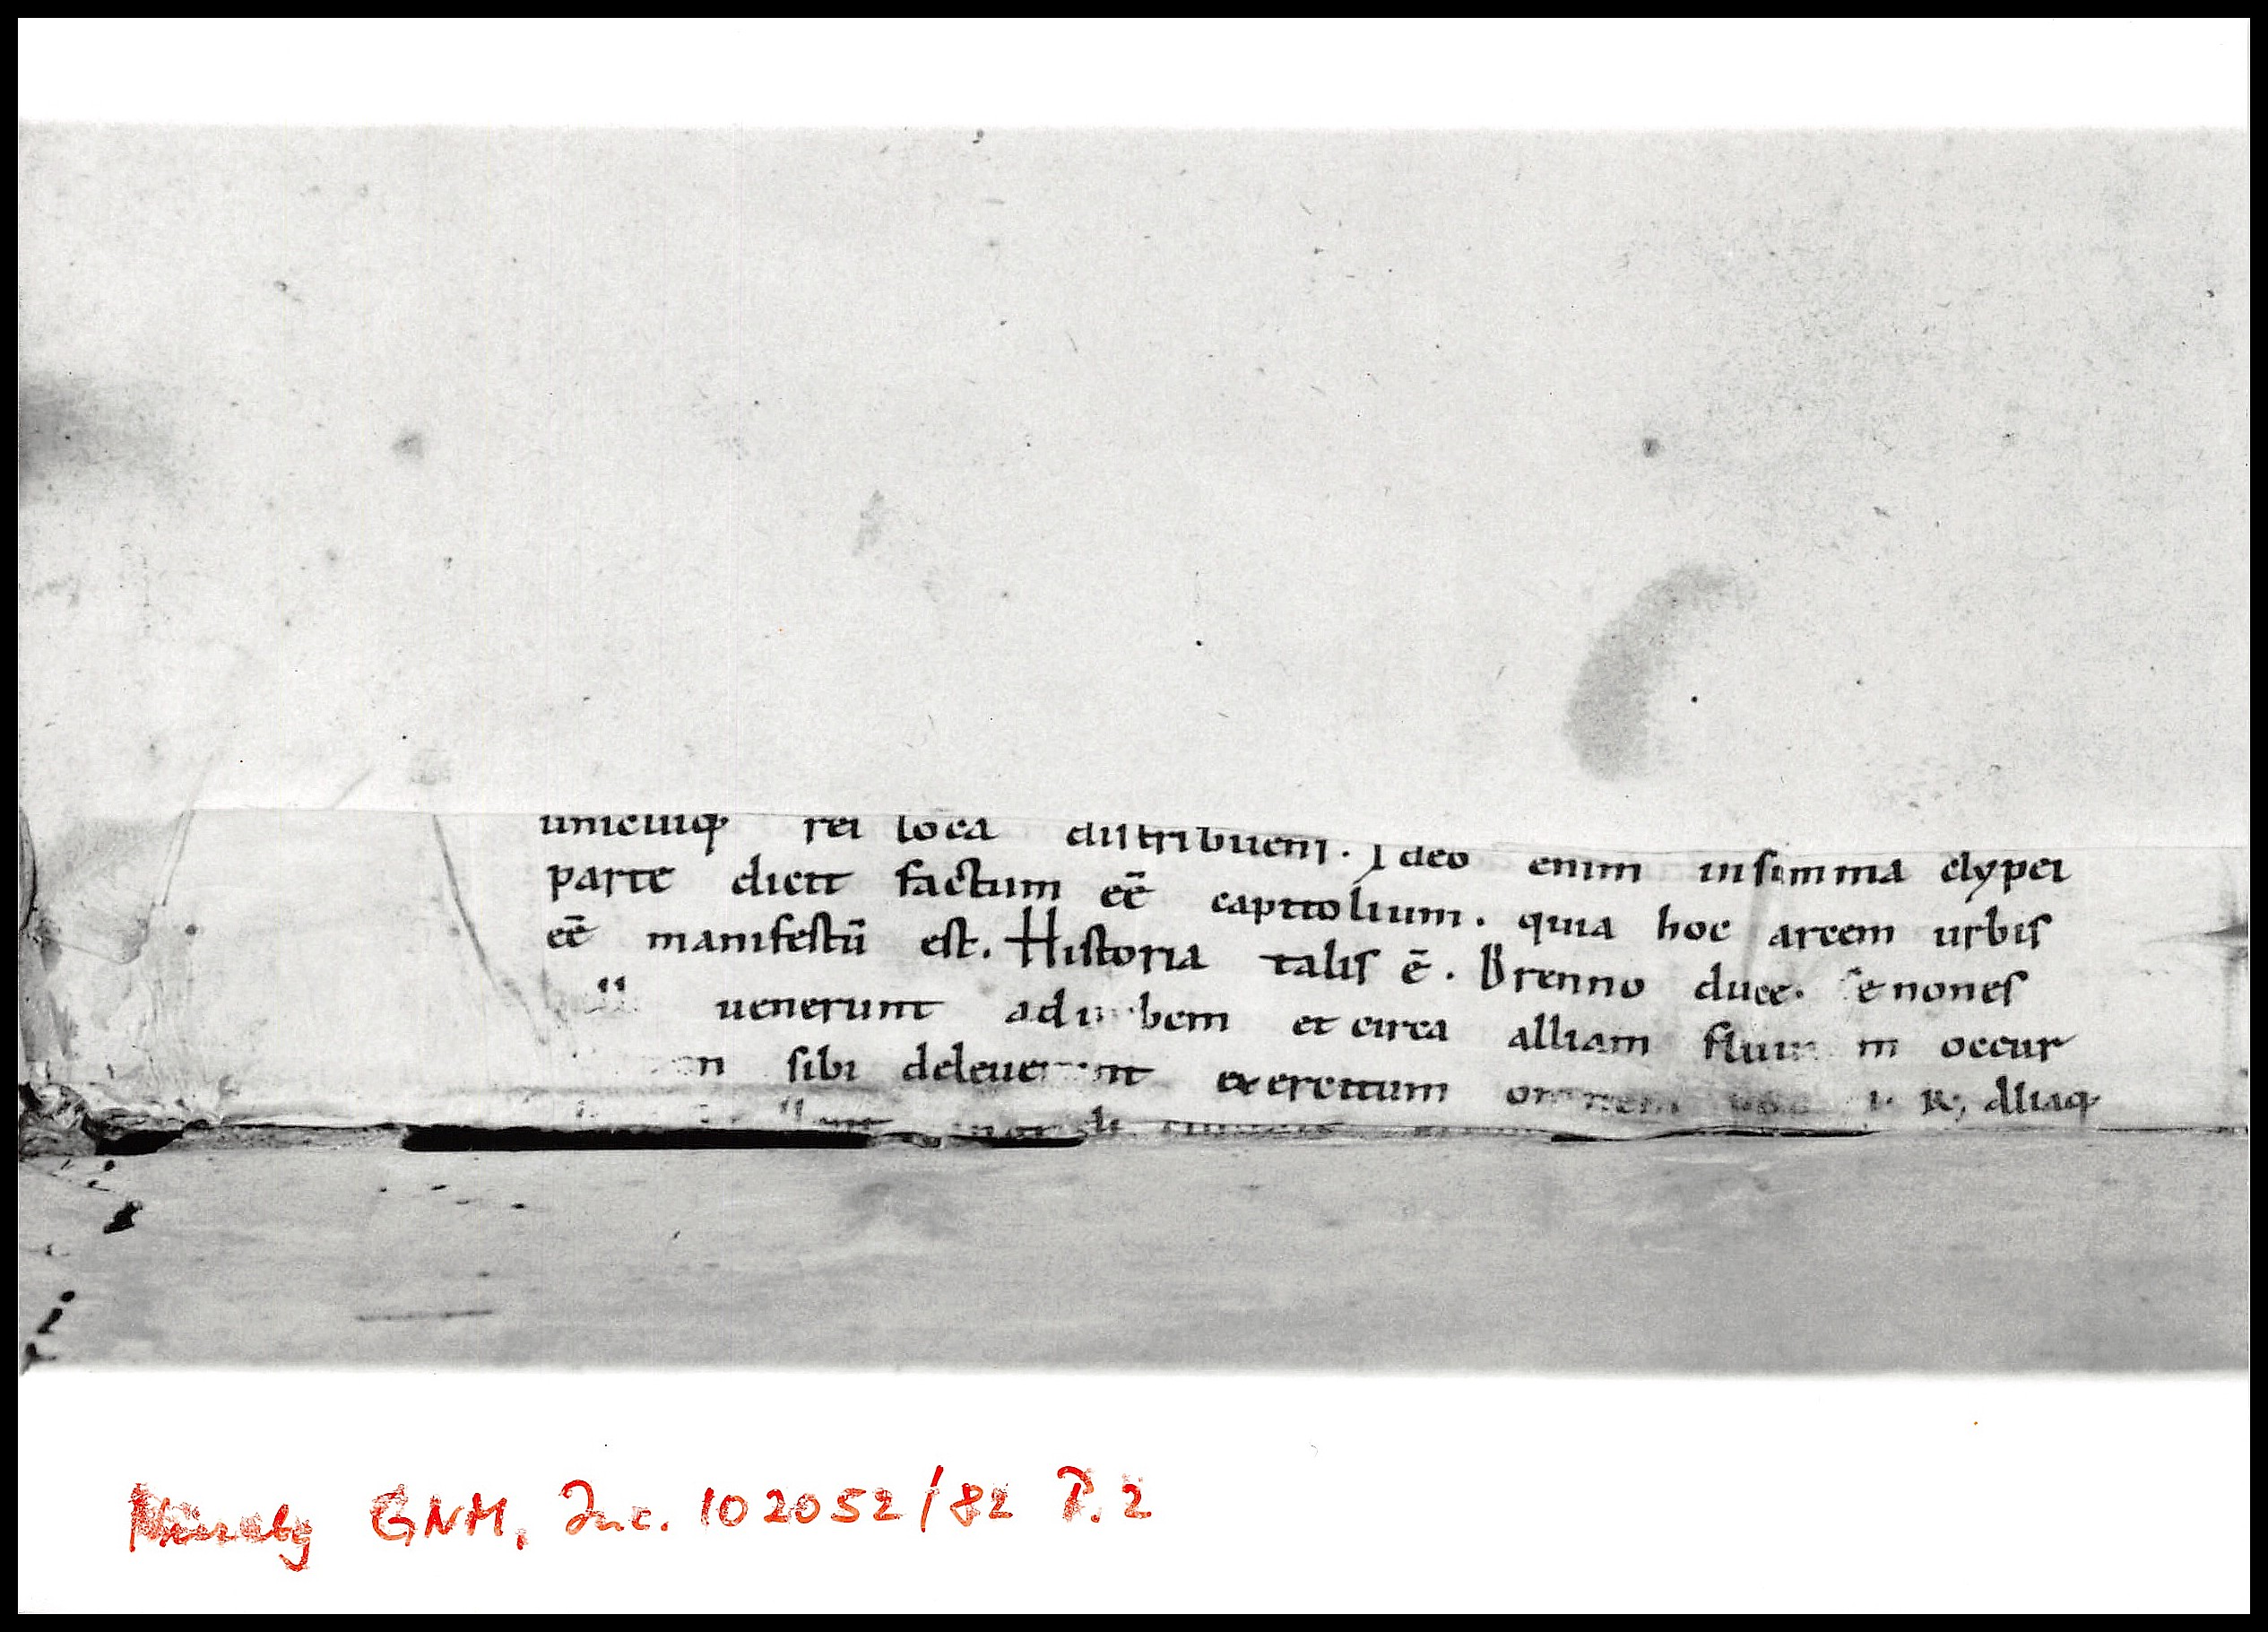 unicuiq; rei loca distribuens. Ideo enim insumma clypei
parte dicit factum eē capitolium. quia hoc arcem urbis
eē manifestū est. Historia talis ē. Brenno duce. senones
uenerunt adurbem et circa alliam occur
sibi deleuerunt exercitum omnem R; Aliaq;
GNM, Inc. 102052/82 P.2